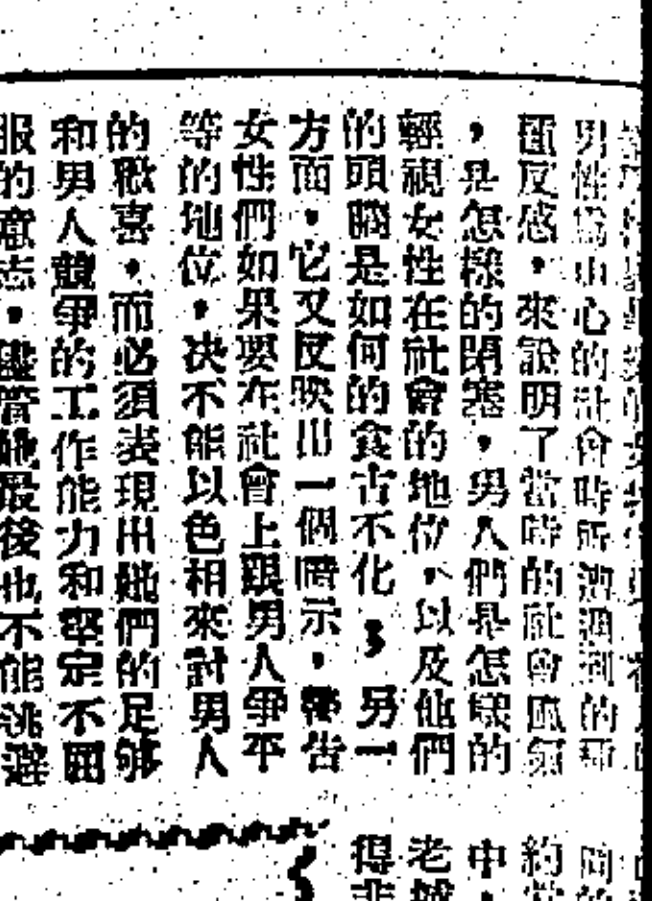 男性爲中心的社會時所遭遇到的種
種反感，來說明了當時的社會風氣
，是怎樣的閉塞，男人們是怎樣的
輕視女性在社會的地位，以及他們
的頭腦是如何的食古不化，另一
方面，它又反映出一個暗示，警告
女性們如果要在社會上跟男人爭平
等的地位，决不能以色相來討男人
的歡喜，而必須表現出她們的足够
和男人競爭的工作能力和堅定不困
服的意志，儘管她最後也不能逃避
約
中，
老
得非